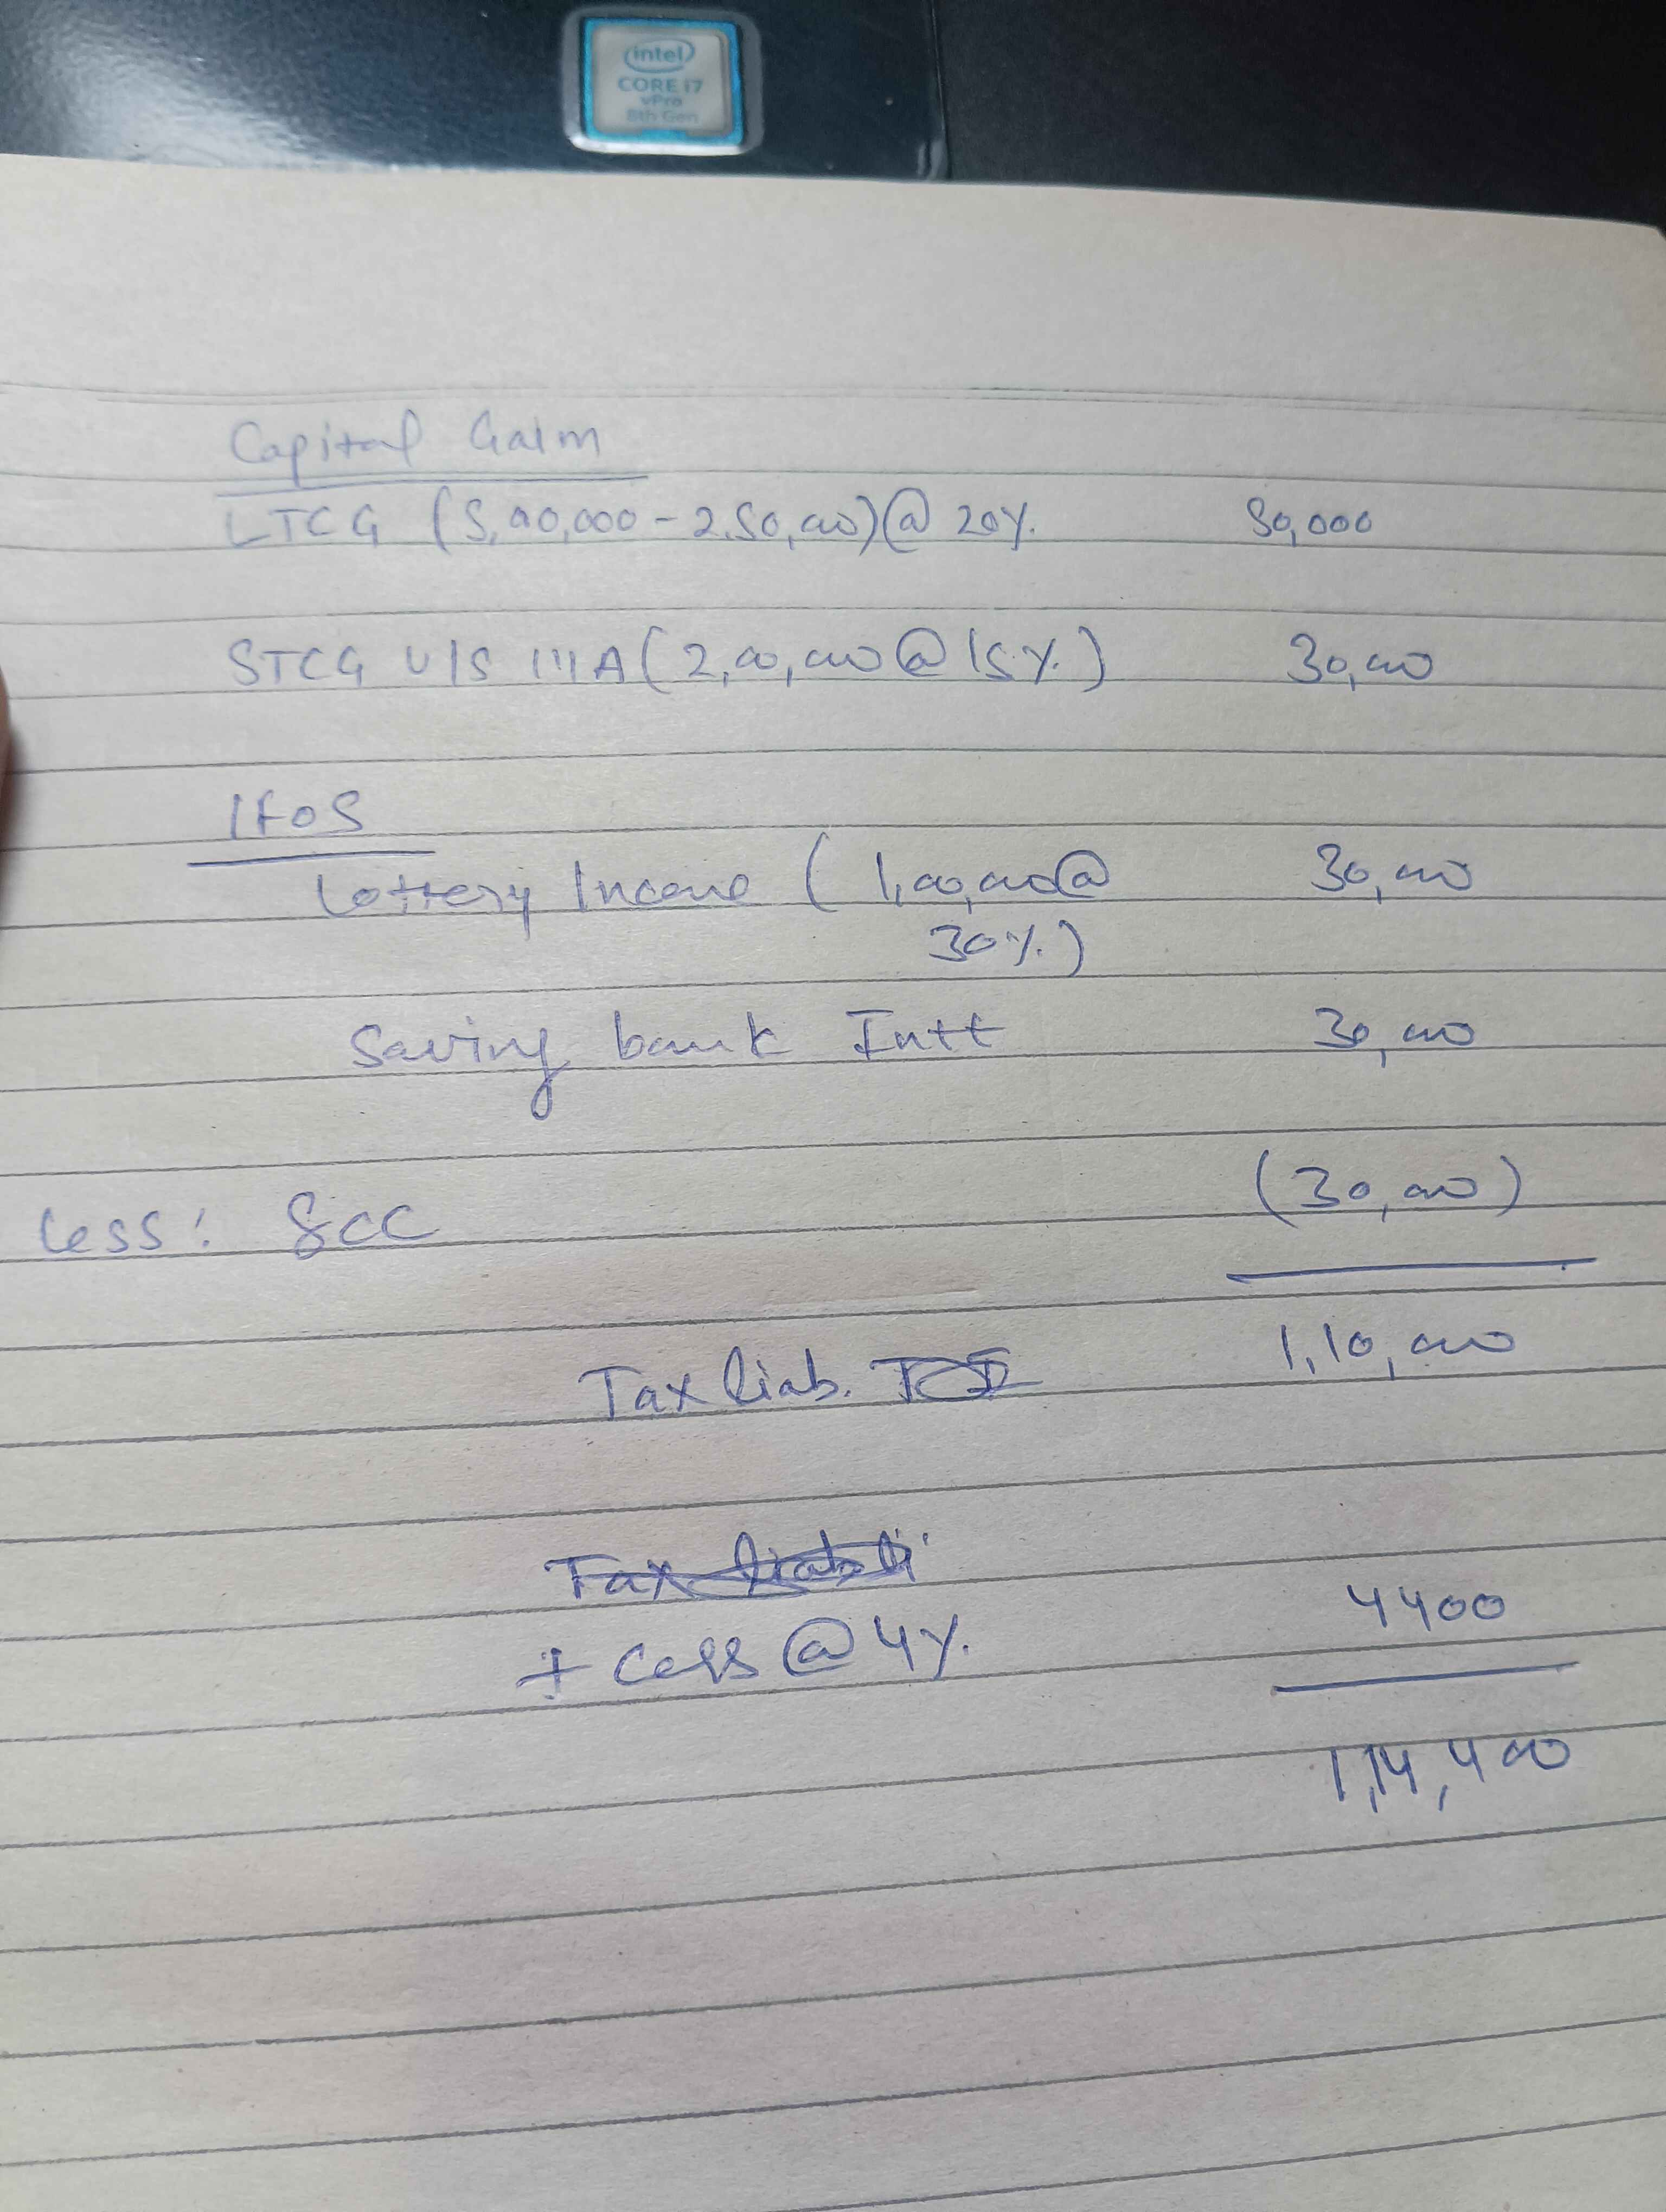 intel
CORE i7
vPro
8th Gen
Capital Gain
LTCG (5,00,000 - 2,50,000) @ 20%. 50,000
STCG U/S 111A (2,00,000 @ 15%.) 30,000
IFOS
Lottery Income (1,00,000 @ 30,000
30%.)
Saving bank Intt 30,000
Less: 80C (30,000)
Tax liab. 1,10,000
Tax liabili
+ Cess @ 4%. 4400
1,14,400